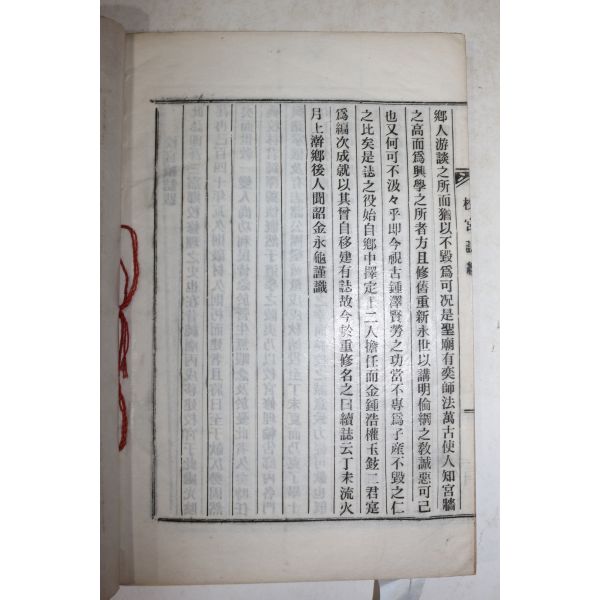 鄉人游談之所而猶以不毀爲可况是聖廟有奕師法萬古使人知宮牆
之高而爲興學之所者方且修舊重新永世以講明倫綱之敎誠惡可已
也又何可不汲々乎即今視古鍾澤賢勞之功當不專爲子產不毀之仁
之比矣是誌之役始自鄉中擇定上二人擔任而金鍾浩權玉鉉二君寔
爲編次成就以其曾自移建有誌故今於重修名之曰續誌云丁未流火
月上澣鄉後人聞韶金永龜謹識
校宮誌